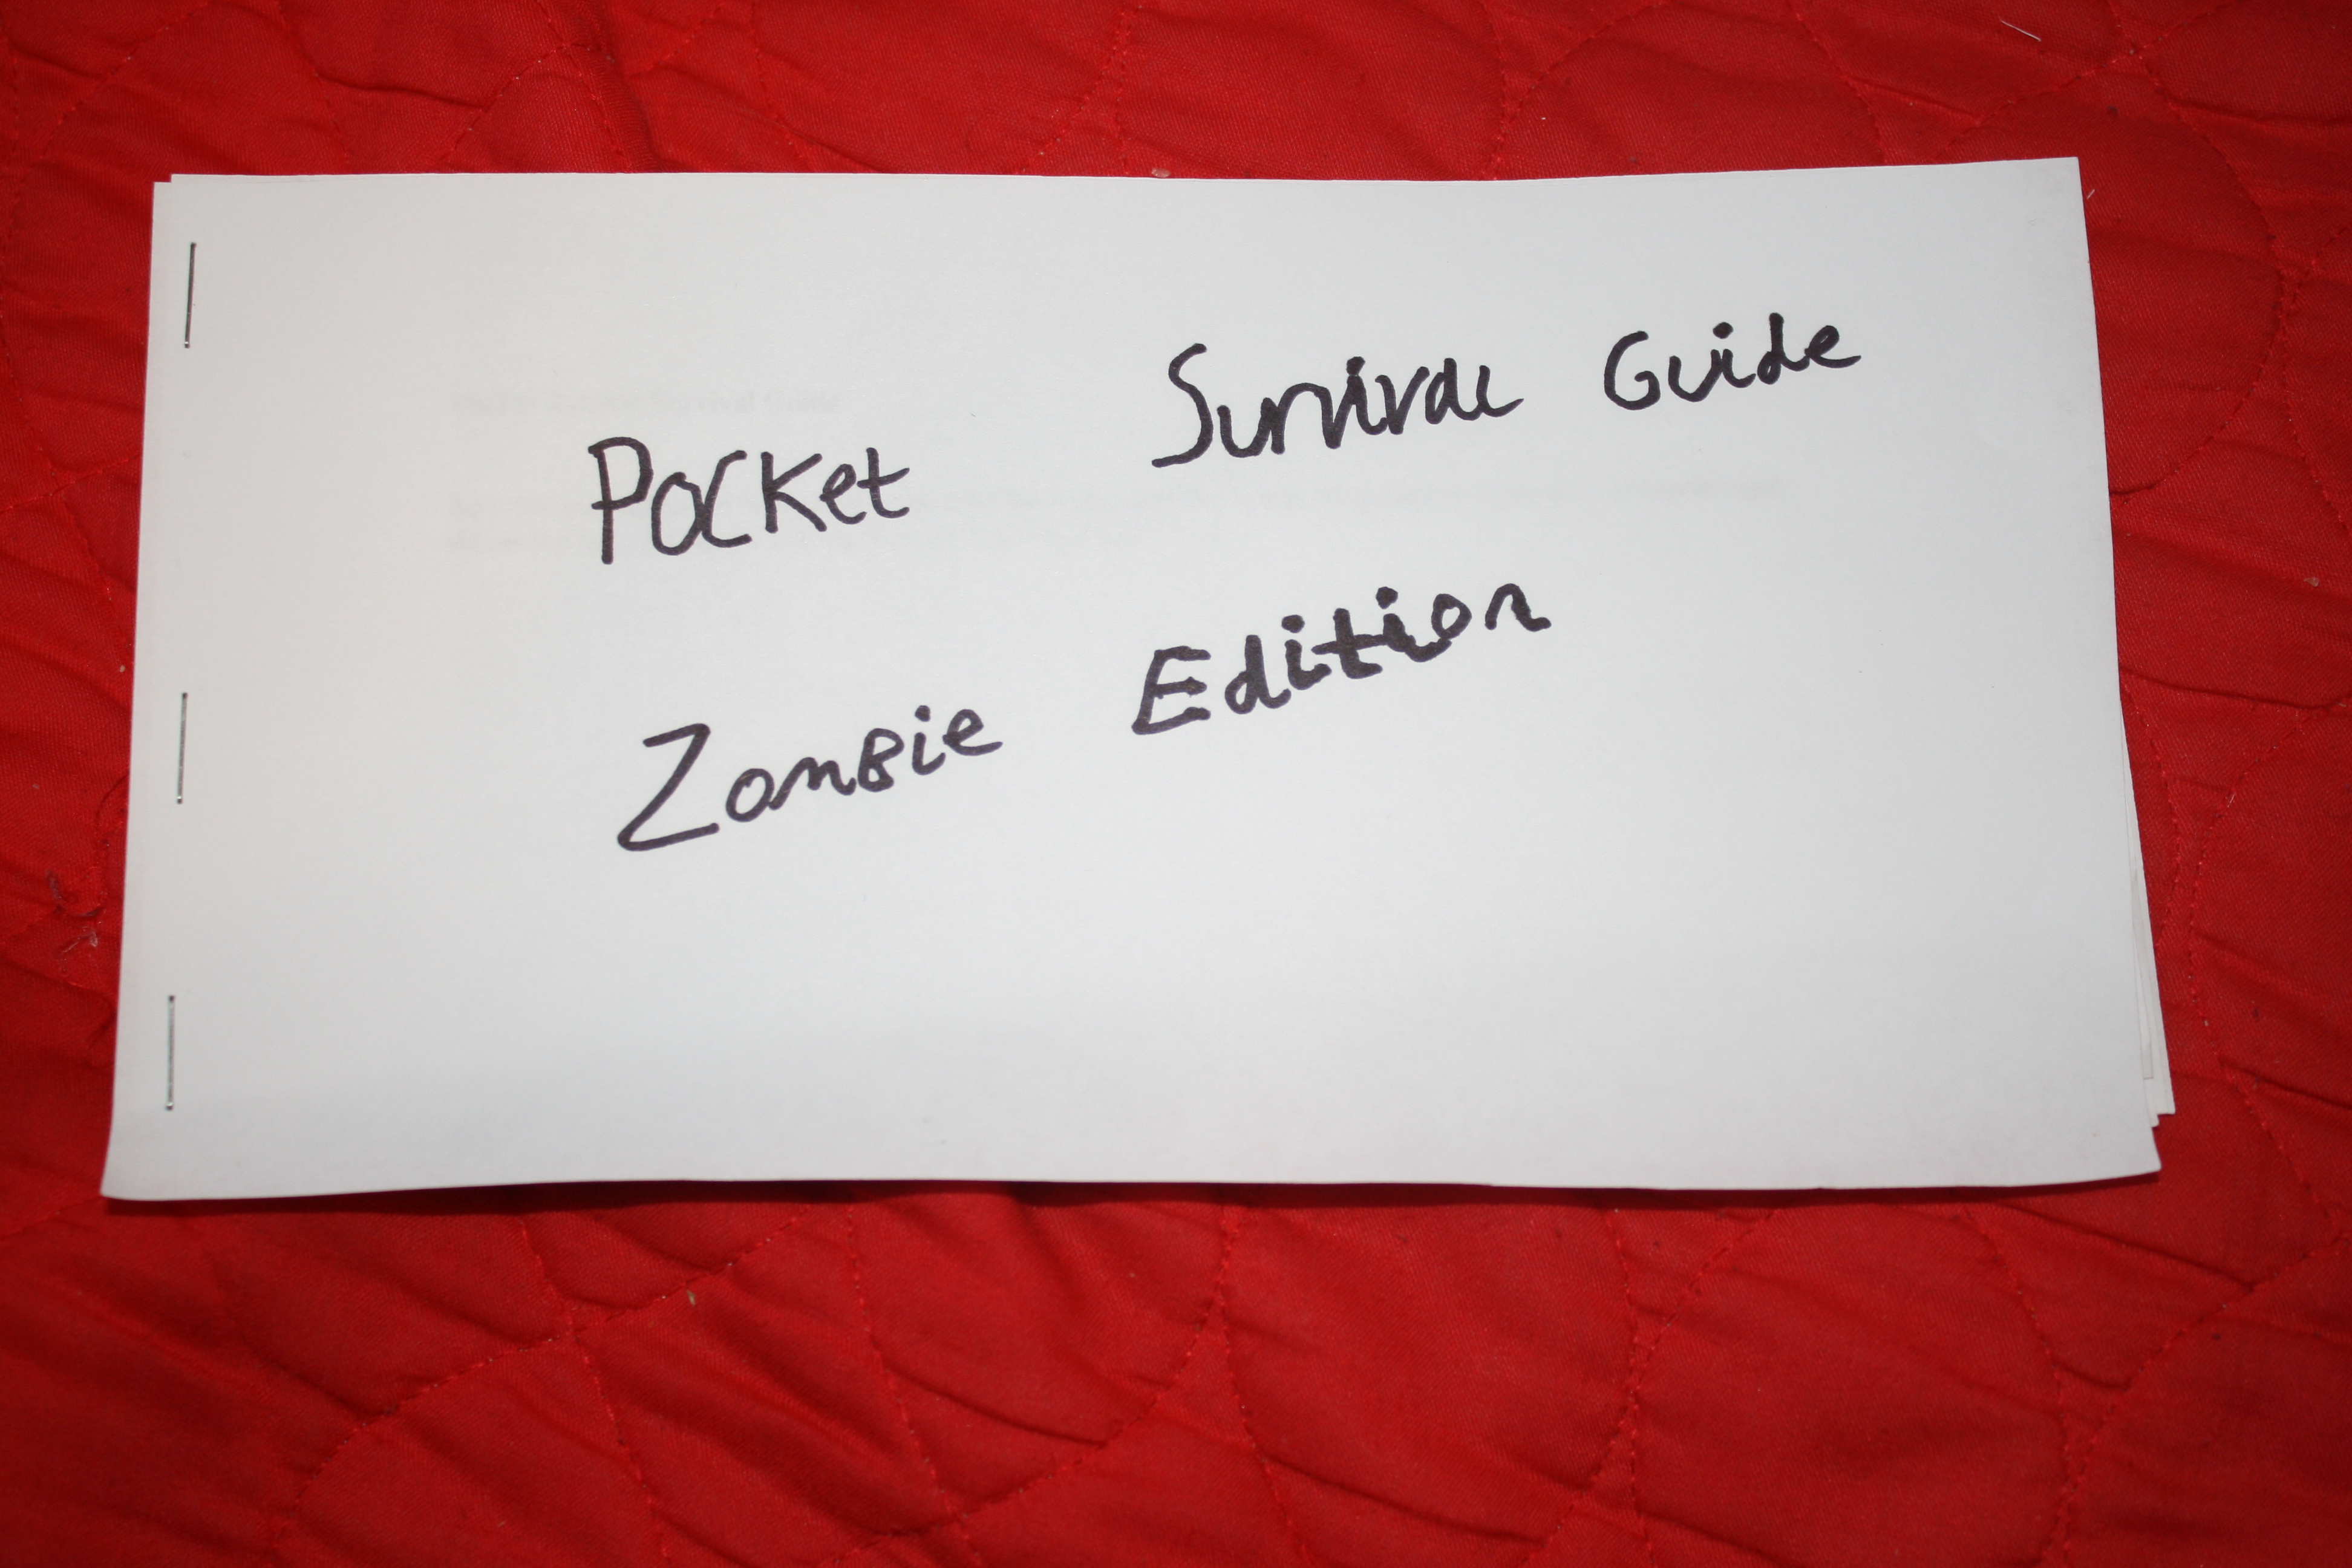 Pocket Survival Guide
Zombie Edition